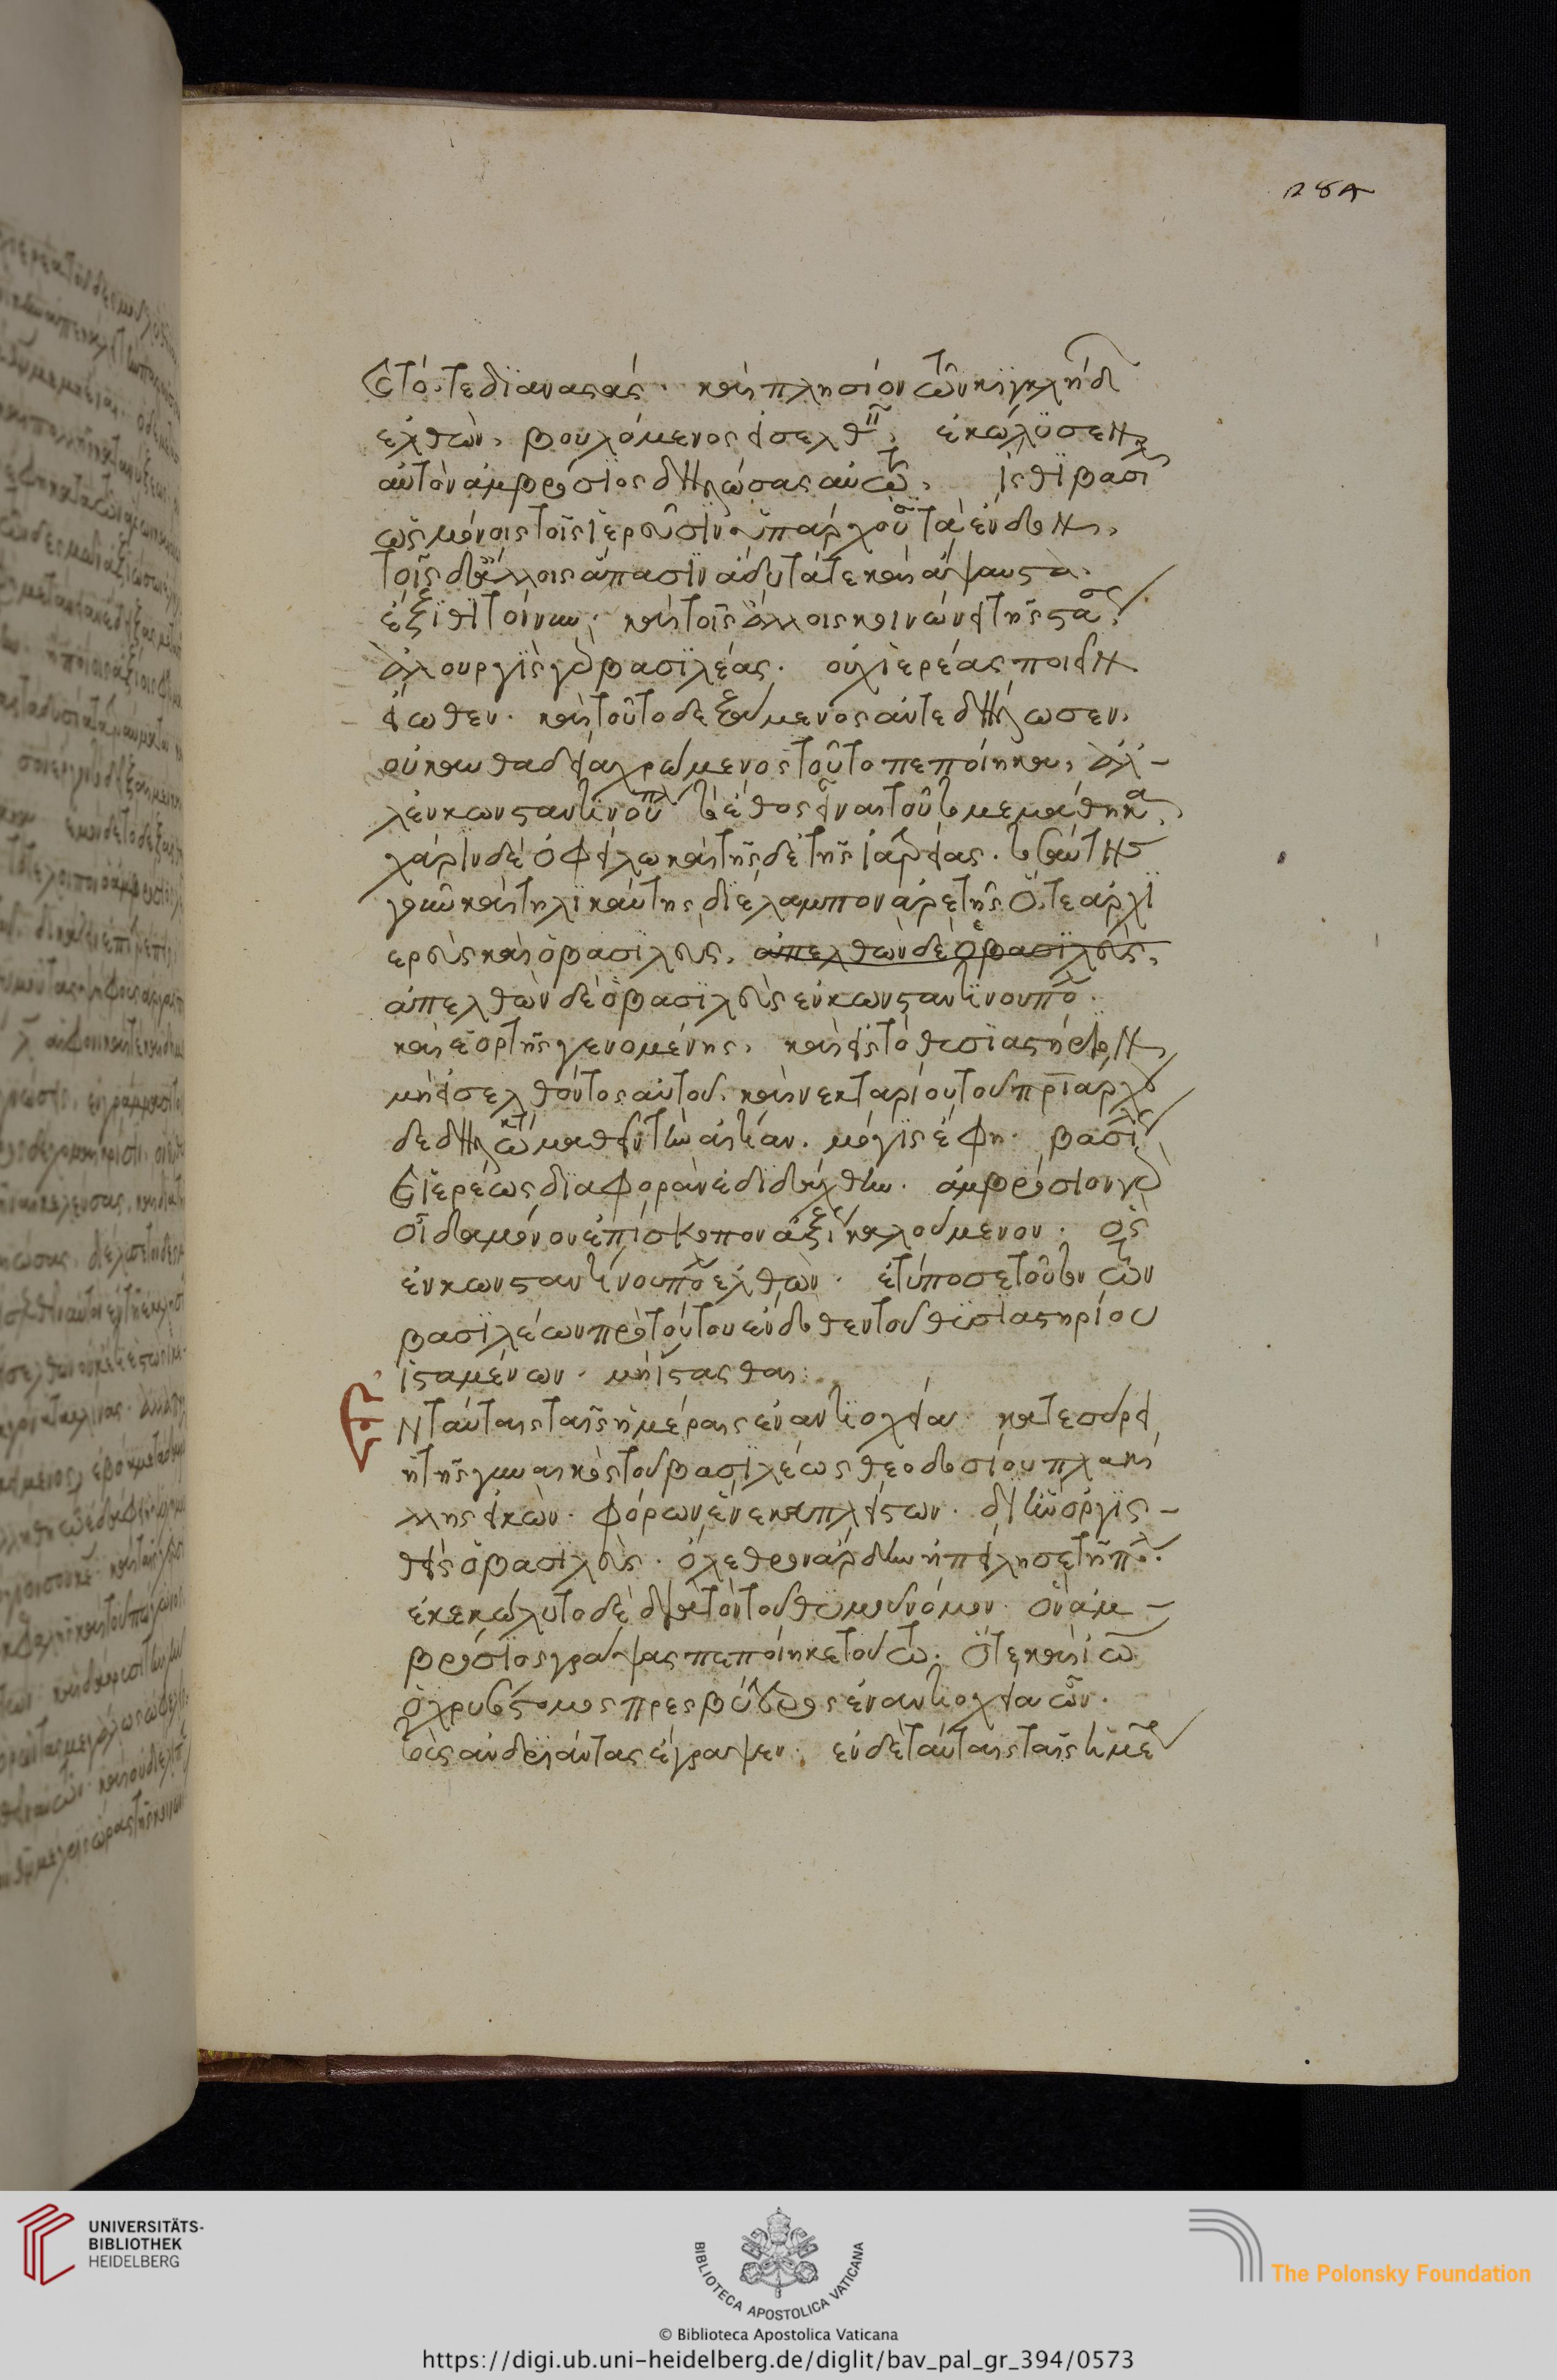 284
τότε διαναστάς. καὶ πλησίον τῶν κηγκλήδ
ελθὼν, βουλόμενος εἰσελθῆ, ἐκώλϋσεν
αὐτὸν ἀμβρόσϊος δηλώσας αὐτῶ, ἴσθϊ βασϊ
ὡς μόνοις τοῖς ϊερεῦσϊν ὑπάρχουσι τὰ ἔνδον,
τοῖς δὲ ἄλλοις ἅπασϊν ἄδυτά τε καὶ ἄψαυστα.
ἔξϊθϊ τοίνυν. καὶ τοῖς ἄλλοις κοινώνει τῆς στάσ
ἁλουργὶς γὰρ βασϊλέας. οὐχ ϊερέας ποιεῖν
εἴωθεν. καὶ τοῦτο δεξάμενος ἀντεδήλωσεν,
οὐκ αυθαδεία χρώμενος τοῦτο πεποίηκα, ἀλ-
λεν κωνσταντινουπλ τὸ ἔθος εἶναι τοῦτο μεμάθηκα
χάριν δὲ ὀφείλω καὶ τῆς δὲ τῆς ἰατρείας. τοσαύτη
γοῦν καὶ τηλικαύτης διέλαμπον ἀρετῆς ὅ,τε ἀρχϊ
ερεὺς καὶ ὁ βασϊλεύς, ἀπελθὼν δὲ ὁ βασϊλεύς,
ἀπελθὼν δὲ ὁ βασϊλεὺς ἐν κωνσταντϊνουπό.
καὶ ἑορτῆς γενομένης, καὶ εἰς τὸ θυσϊαστήριον
μὴ εἰσελθόντος αὐτοῦ, καὶ νεκταρίου τοῦ πρϊαρχ
δεδηλωκότ μαθεῖν τὴν αἰτίαν. μόγϊς ἔφη. βασϊλς
ϊερέως δϊαφορὰν ἐδιδάχθην. ἀμβρόσιον γὰρ
οἶδα μόνον ἐπίσκοπον ἀξί καλούμενον. ὃς
ἐν κωνσταντινουπό ἐλθὼν. ἐτύποσε τοῦτο τῶν
βασϊλέων πρὸ τούτου ἔνδοθεν τοῦ θυσϊαστηρίου
ἱσταμένων. μὴ ἵστασθαι:
Ἐν ταύταις ταῖς ἡμέραις ἐν αντϊοχεία κατεσύρει
ἡ τῆς γυναικὸς τοῦ βασϊλέως θεοδοσίου πλακή
λλης εἰκών. φόρων ἕνεκα πλείστων. δι' ἣν ὀργϊσ-
θεὶς ὁ βασϊλεὺς. ὄλεθρον ἄρδην ἠπείλησε τῆ πό.
ἐκεκώλυτο δὲ διὰ τὸν τοῦ θϋμοῦ νόμον. ὃν ἀμ-
βρόσϊος γράψας πεποίηκε τούτω. ὅτε καὶ ἰω
ὁ χρυσόστομος πρεσβύτερος ἐν αντιοχεία ὤν.
τοὺς ανδριάντας ἔγραψεν. ἐν δὲ ταύταις ταῖς ἡμέ
UNIVERSITÄTS-
BIBLIOTHEK
HEIDELBERG
BIBLIOTECA APOSTOLICA VATICANA
The Polonsky Foundation
© Biblioteca Apostolica Vaticana
https://digi.ub.uni-heidelberg.de/diglit/bav_pal_gr_394/0573